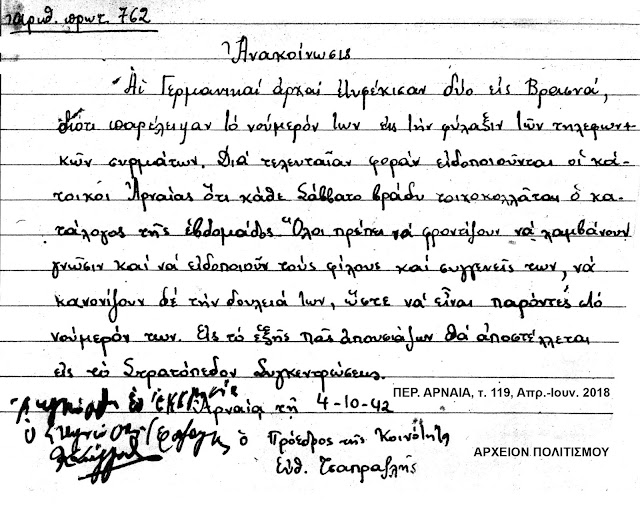 ἀριθ. πρωτ. 762
Ἀνακοίνωσις
Αἱ Γερμανικαί ἀρχαί ἐτυφέκισαν δύο εἰς Βρασνά,
διότι παρέλειψαν τό νούμερόν των εἰς τήν φύλαξιν τῶν τηλεφωνι
κῶν συρμάτων. Διά τελευταῖαν φοράν εἰδοποιοῦνται οἱ κά-
τοικοι Ἀρναίας ὅτι κάθε Σάββατο βράδυ τοιχοκολλᾶται ὁ κα-
τάλογος τῆς ἑβδομάδος Ὅλοι πρέπει νά φροντίζουν νά λαμβάνουν
γνῶσιν καί νά εἰδοποιοῦν τούς φίλους καί συγγενεῖς των, νά
κανονίζουν δέ τήν δουλειά των, ὥστε νά εἶναι παρόντες στό
νούμερόν των. Εἰς τό ἑξῆς πᾶς ἀπουσιάζων θά ἀποστέλλεται
εἰς τό Στρατόπεδον Συγκεντρώσεως.
ΠΕΡ. ΑΡΝΑΙΑ, τ. 119, Απρ.-Ιουν. 2018
Ἀρναία τῇ 4-10-42
ὁ Πρόεδρος τῆς Κοινότητος
Εὐθ. Τσαπραβλῆς
ΑΡΧΕΙΟΝ ΠΟΛΙΤΙΣΜΟΥ